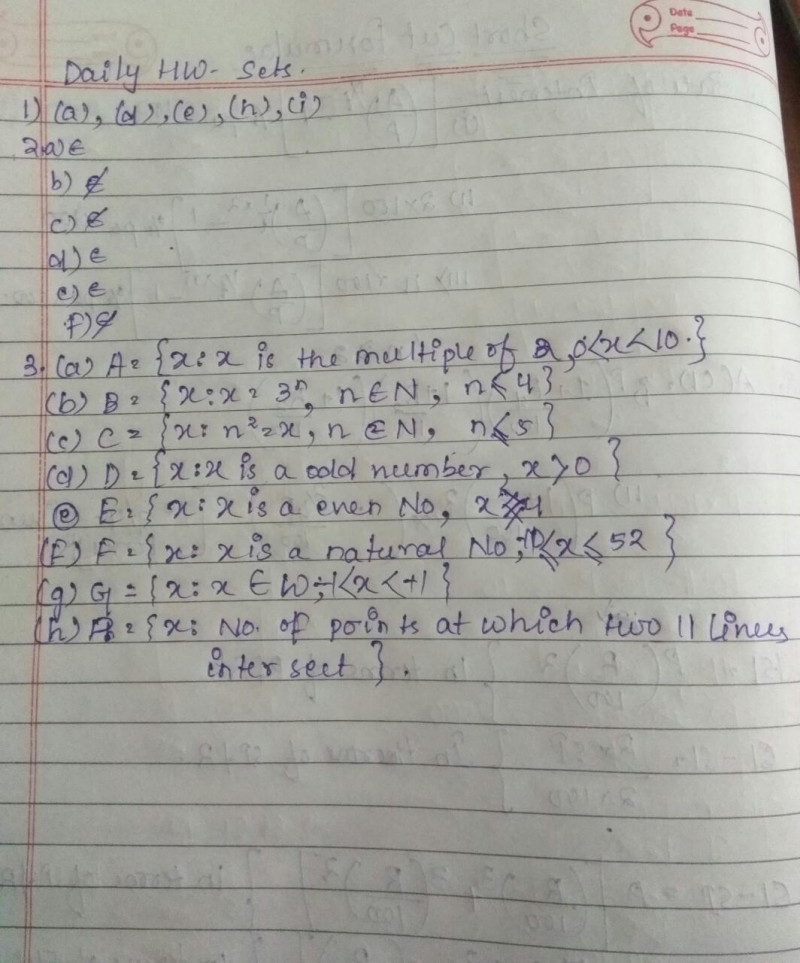 Date
Page
Daily HW- Sets.
1) (a), (d), (e), (h), (i)
2.a) ∈
b) ∉
c) ∉
d) ∈
e) ∈
f) ∉
3. (a) A = {x : x is the multiple of 2, 0<x<10.}
(b) B = {x : x = 3ⁿ, n ∈ N, n ≤ 4}
(c) C = {x : n² = x, n ∈ N, n ≤ 5}
(d) D = {x : x is a odd number, x > 0 }
(e) E = { x : x is a even No, x
(F) F = {x : x is a natural No, ≤ x ≤ 52 }
(g) G = {x : x ∈ W, -1 < x < +1 }
(h) = {x : No. of points at which two || lines
intersect }.